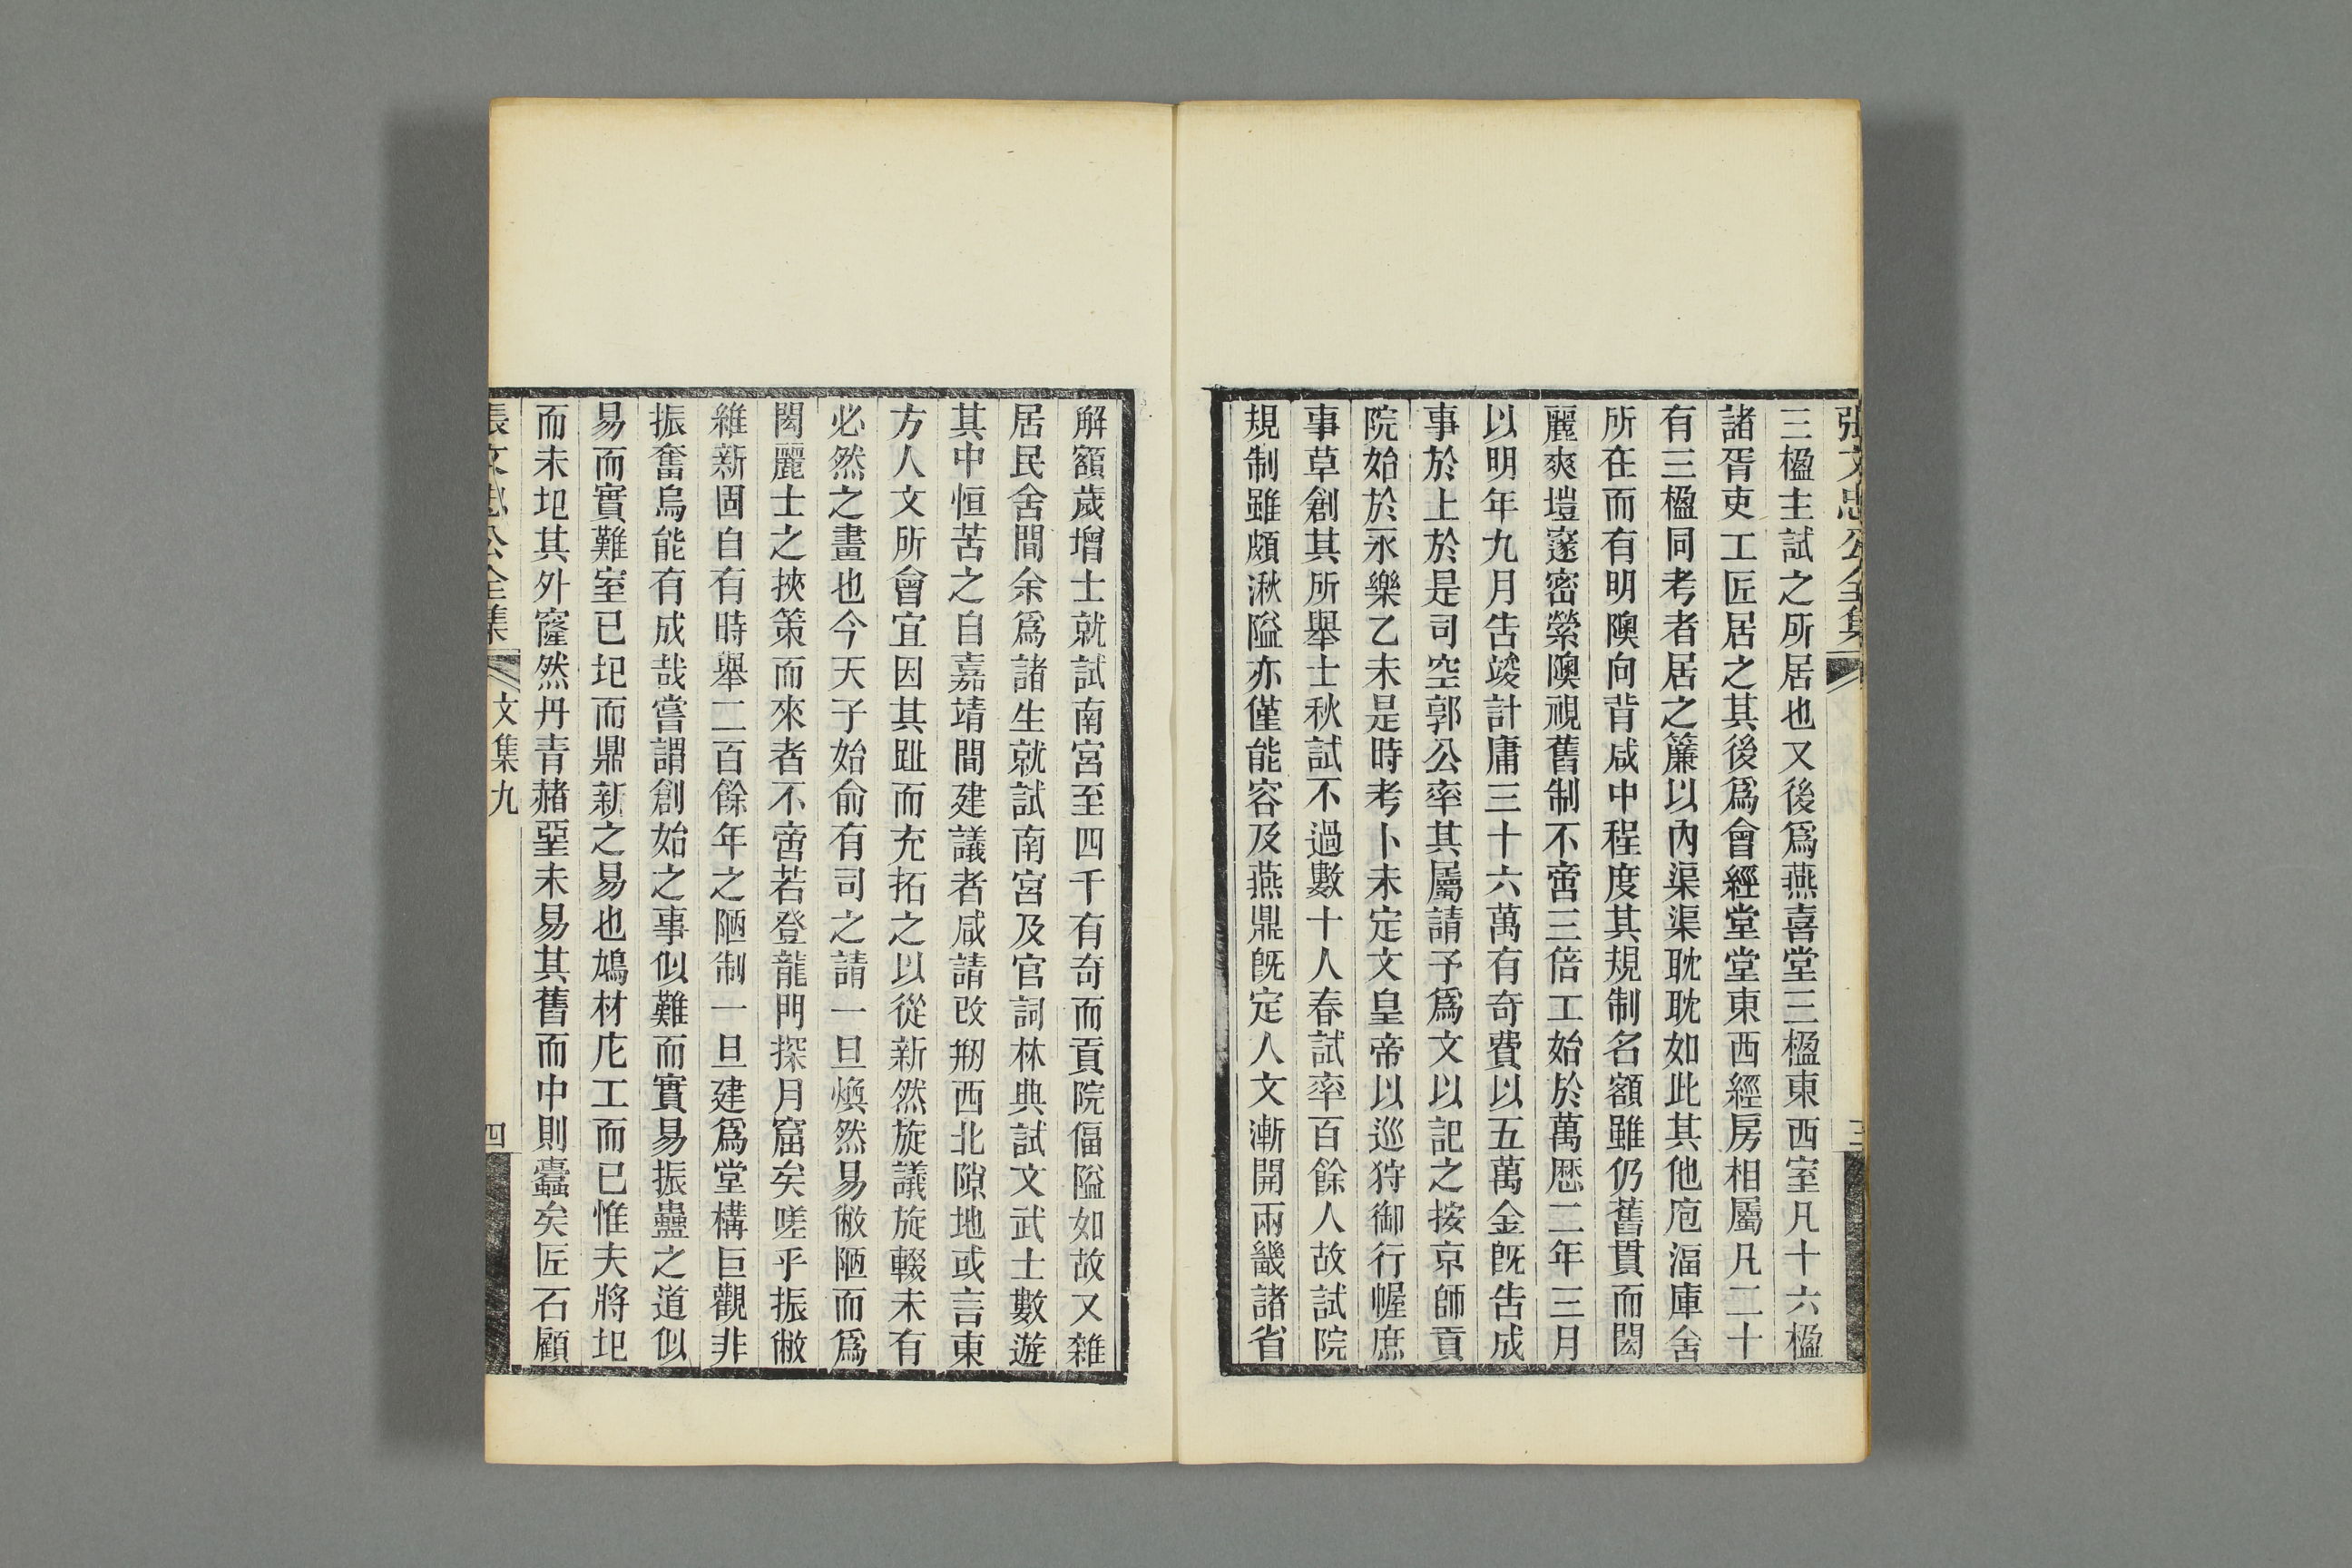 張文忠公全集
三
三楹主試之所居也又後爲燕喜堂三楹東西室凡十六楹
諸胥吏工匠居之其後爲會經堂堂東西經房相屬凡二十
有三楹同考者居之簾以內渠渠耽耽如此其他庖湢庫舍
所在而有明隩向背咸中程度其規制名額雖仍舊貫而閎
麗爽塏邃密縈隩視舊制不啻三倍工始於萬歷二年三月
以明年九月告竣計庸三十六萬有奇費以五萬金旣告成
事於上於是司空郭公率其屬請予爲文以記之按京師貢
院始於永樂乙未是時考卜未定文皇帝以巡狩御行幄庶
事草創其所舉士秋試不過數十人春試率百餘人故試院
規制雖頗湫隘亦僅能容及燕鼎旣定人文漸開兩畿諸省
解額歲增士就試南宮至四千有奇而貢院偪隘如故又雜
居民舍間余爲諸生就試南宮及官詞林典試文武士數遊
其中恒苦之自嘉靖間建議者咸請改剙西北隙地或言東
方人文所會宜因其趾而充拓之以從新然旋議旋輟未有
必然之畫也今天子始俞有司之請一旦煥然易敝陋而爲
閎麗士之挾策而來者不啻若登龍門探月窟矣嗟乎振敝
維新固自有時舉二百餘年之陋制一旦建爲堂構巨觀非
振奮烏能有成哉嘗謂創始之事似難而實易振蠱之道似
易而實難室已圯而鼎新之易也鳩材庀工而已惟夫將圯
而未圯其外窿然丹青赭堊未易其舊而中則蠹矣匠石顧
張文忠公全集
文集九
四